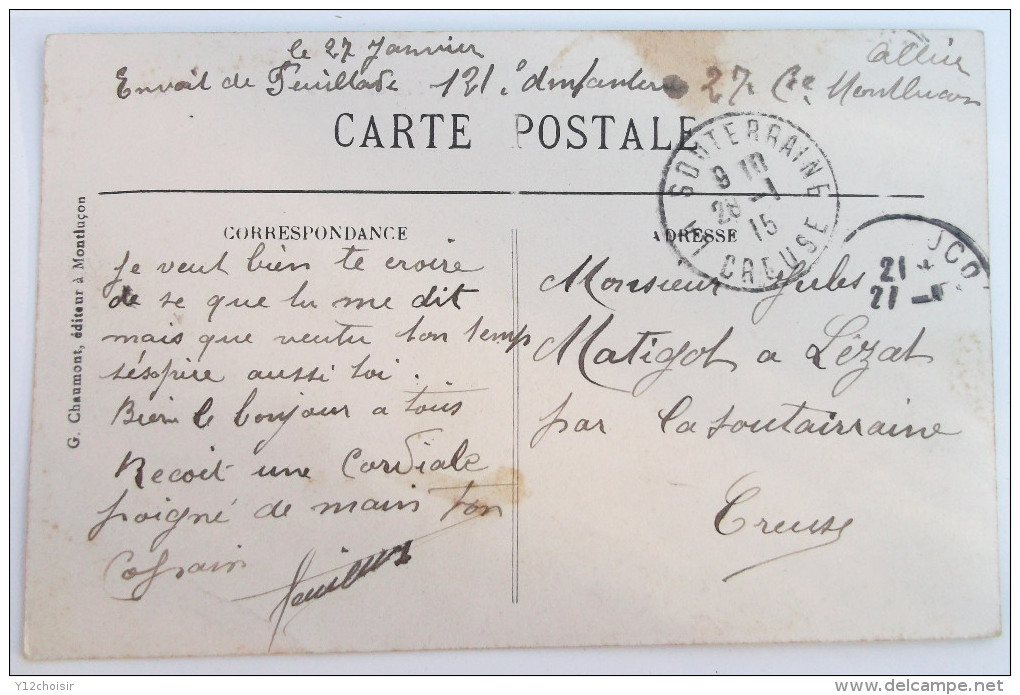 le 27 Janvier
Allier
Envoit de Feuillade 121e dinfanterie 27 Cie Montlucon
CARTE POSTALE
LA SOUTERRAINE
9 10
28 -1
15
CREUSE
CORRESPONDANCE
ADRESSE
G. Chaumont, éditeur à Montluçon
je veut bien te croire
de se que tu me dit
mais que veutu ton temp
sésopire aussi toi.
Bien le bonjour a tous
Recoit une Cordiale
poigné de main ton
Copain
Monsieur Jules
Matigot a Lézat
par la soutairraine
Creuse
21
27
Y12choisir
www.delcampe.net